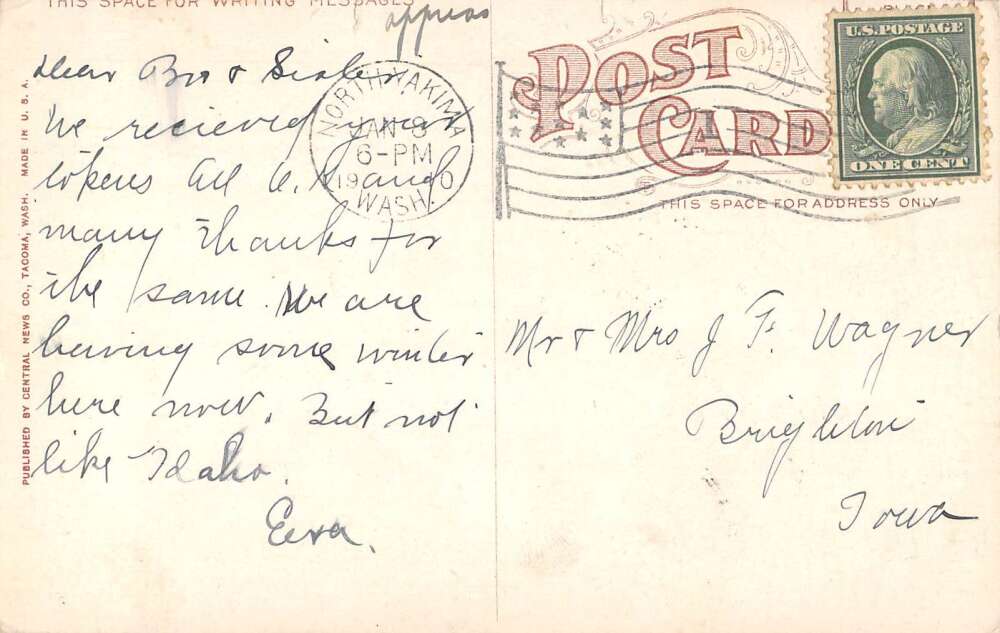 THIS SPACE FOR WRITING MESSAGES
Dear Bro & Sister
We recieved your
tokens all O.K. and
many thanks for
the same. We are
having some winter
here now. But not
like Idaho.
Eva.
PUBLISHED BY CENTRAL NEWS CO., TACOMA, WASH. MADE IN U. S. A.
NORTH YAKIMA
JAN 8
6-PM
19 0
WASH.
POST
CARD
THIS SPACE FOR ADDRESS ONLY
U.S. POSTAGE
ONE CENT
Mr & Mrs J F. Wagner
Brighton
Iowa